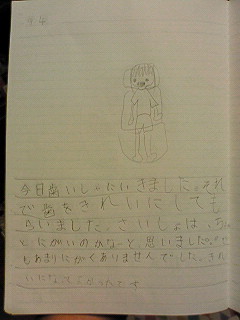 今日歯いしゃにいきました。それ
で歯をきれいにしても
らいました。さいしょは、
とにがいのかなーと、思いました。
もあまりにがくありませんでした。きれ
いになってよかったです